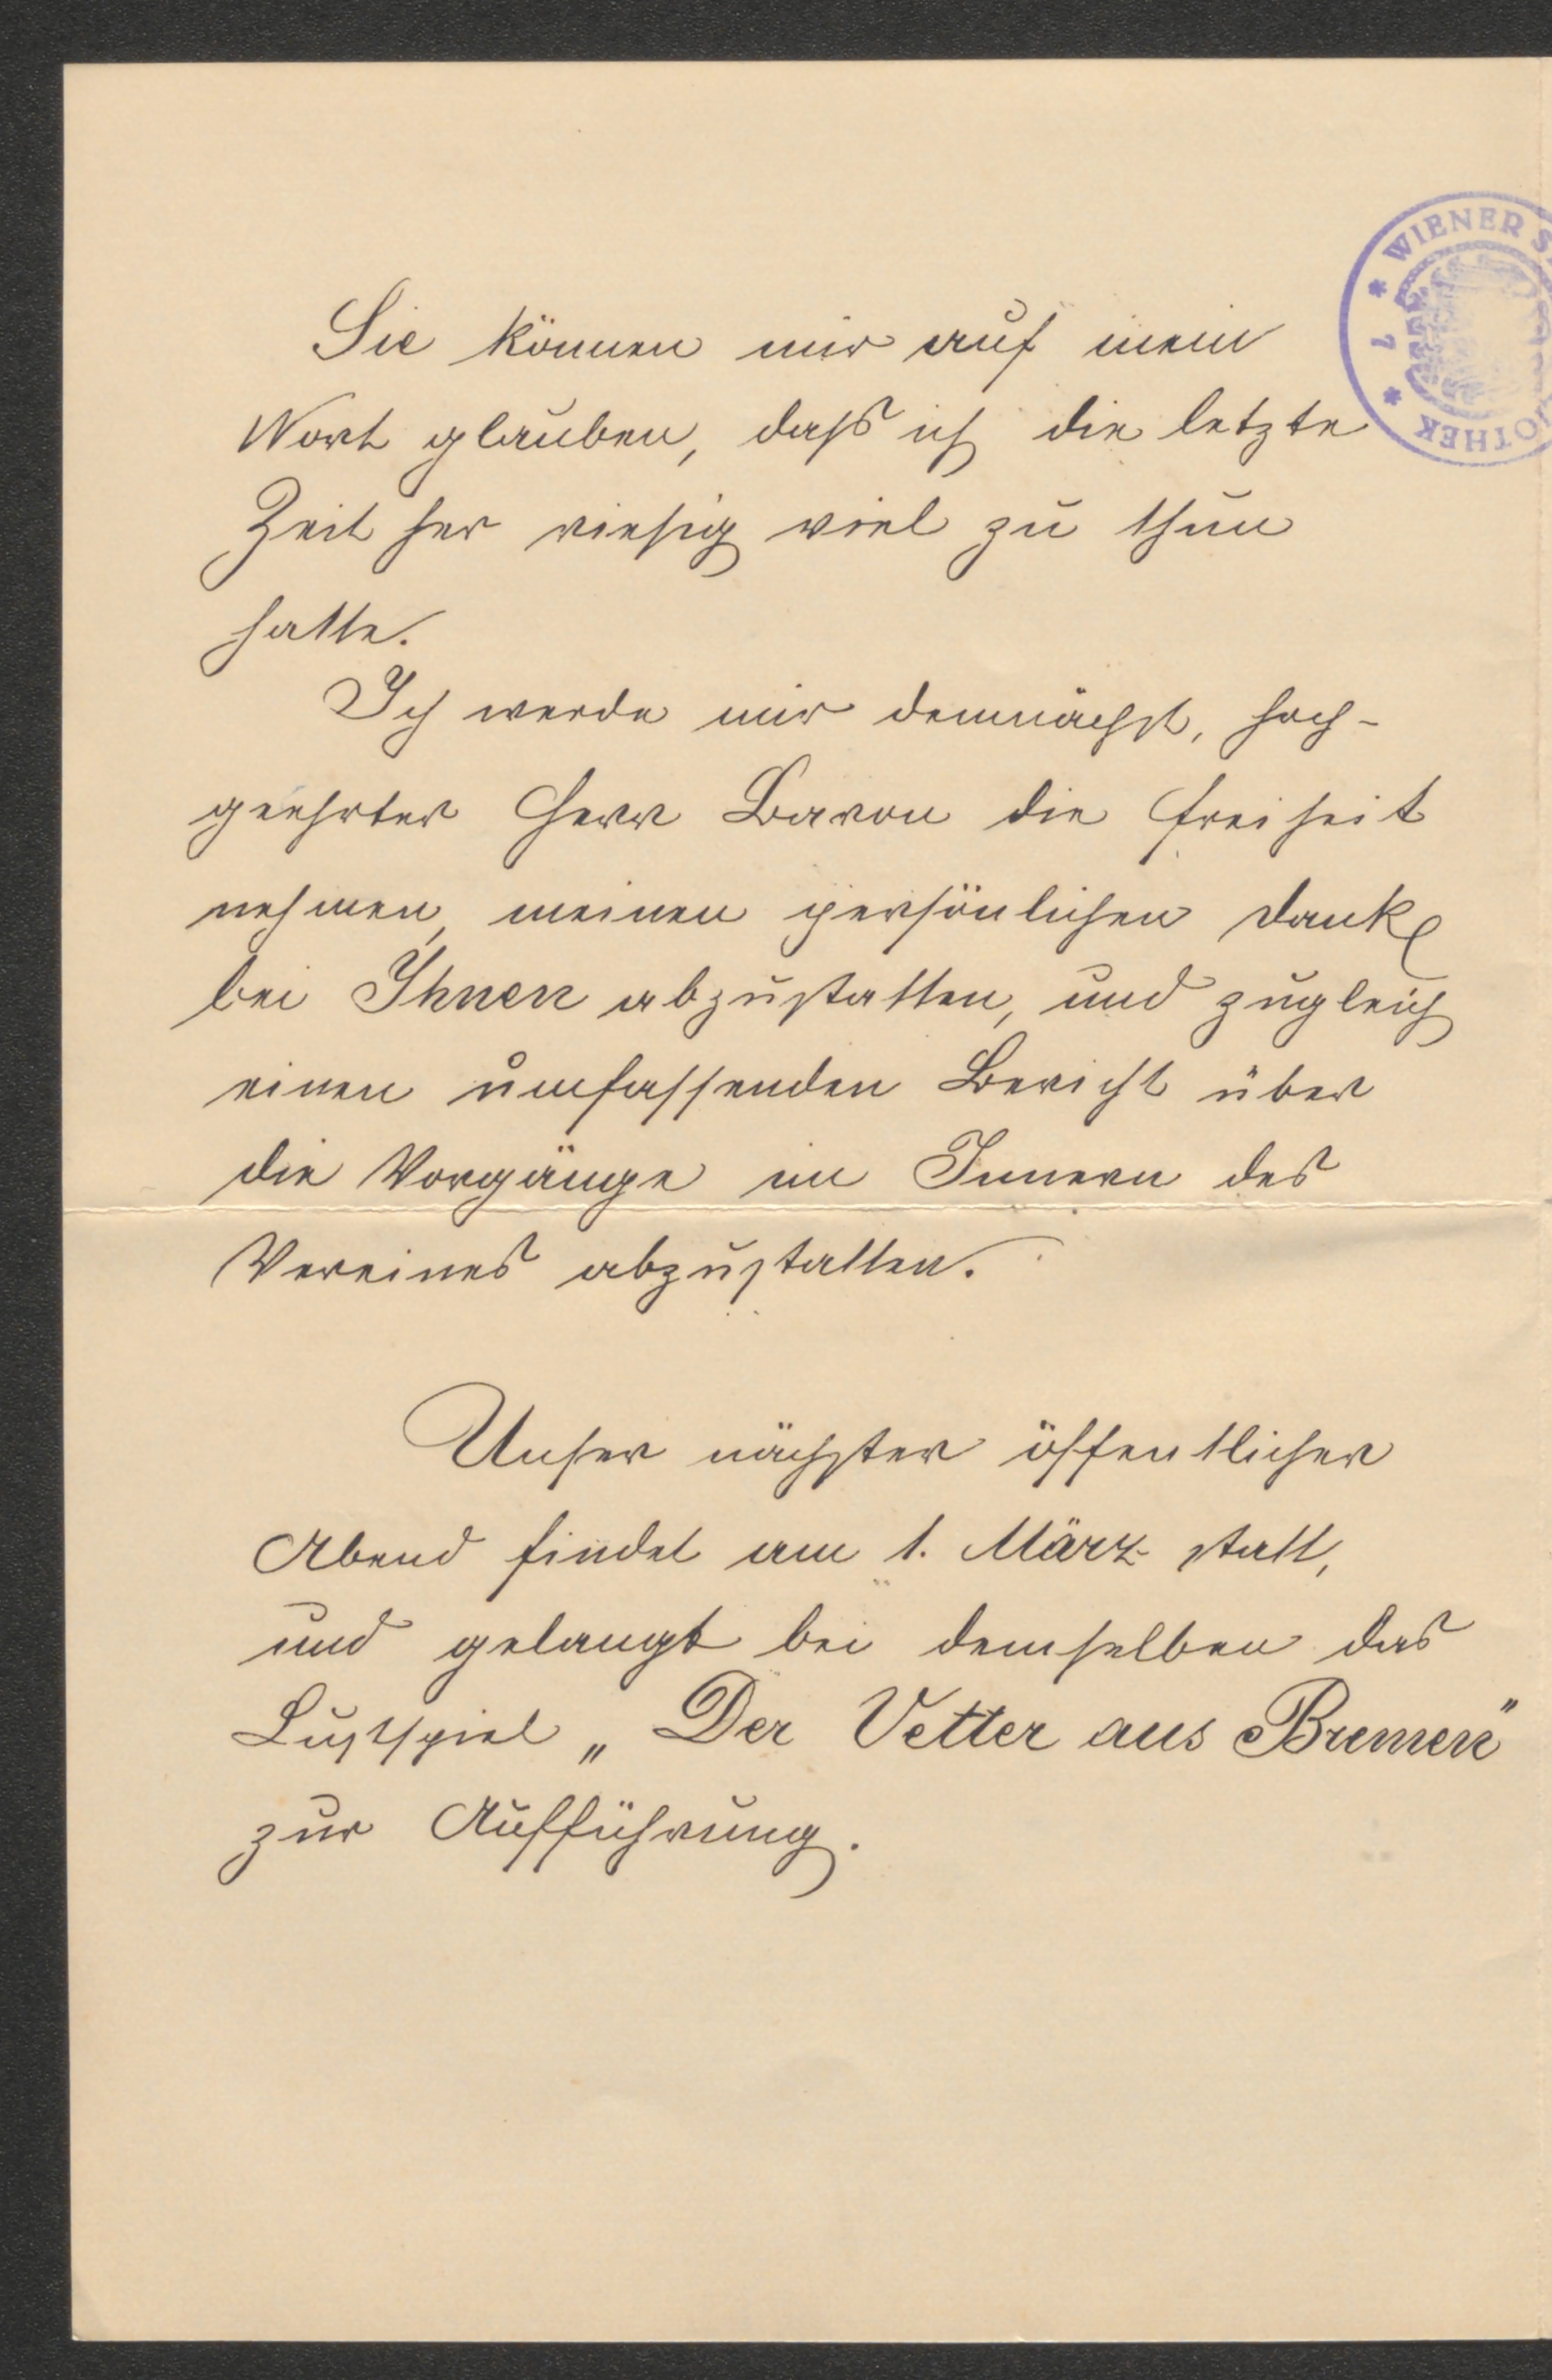 Sie können mir auf mein
Wort glauben, dass ich die letzte
Zeit her riesig viel zu thun
hatte.
Ich werde mir demnächst, hoch-
geehrter Herr Baron die Freiheit
nehmen, meinen persönlichen Dank
bei Ihnen abzustatten, und zugleich
einen umfassenden Bericht über
die Vorgänge im Innern des
Vereines abzustatten.
Unser nächster öffentlicher
Abend findet am 1. März statt,
und gelangt bei demselben das
Lustspiel „Der Vetter aus Bremen"
zur Aufführung.
* WIENER
* 7 *
OTHEK